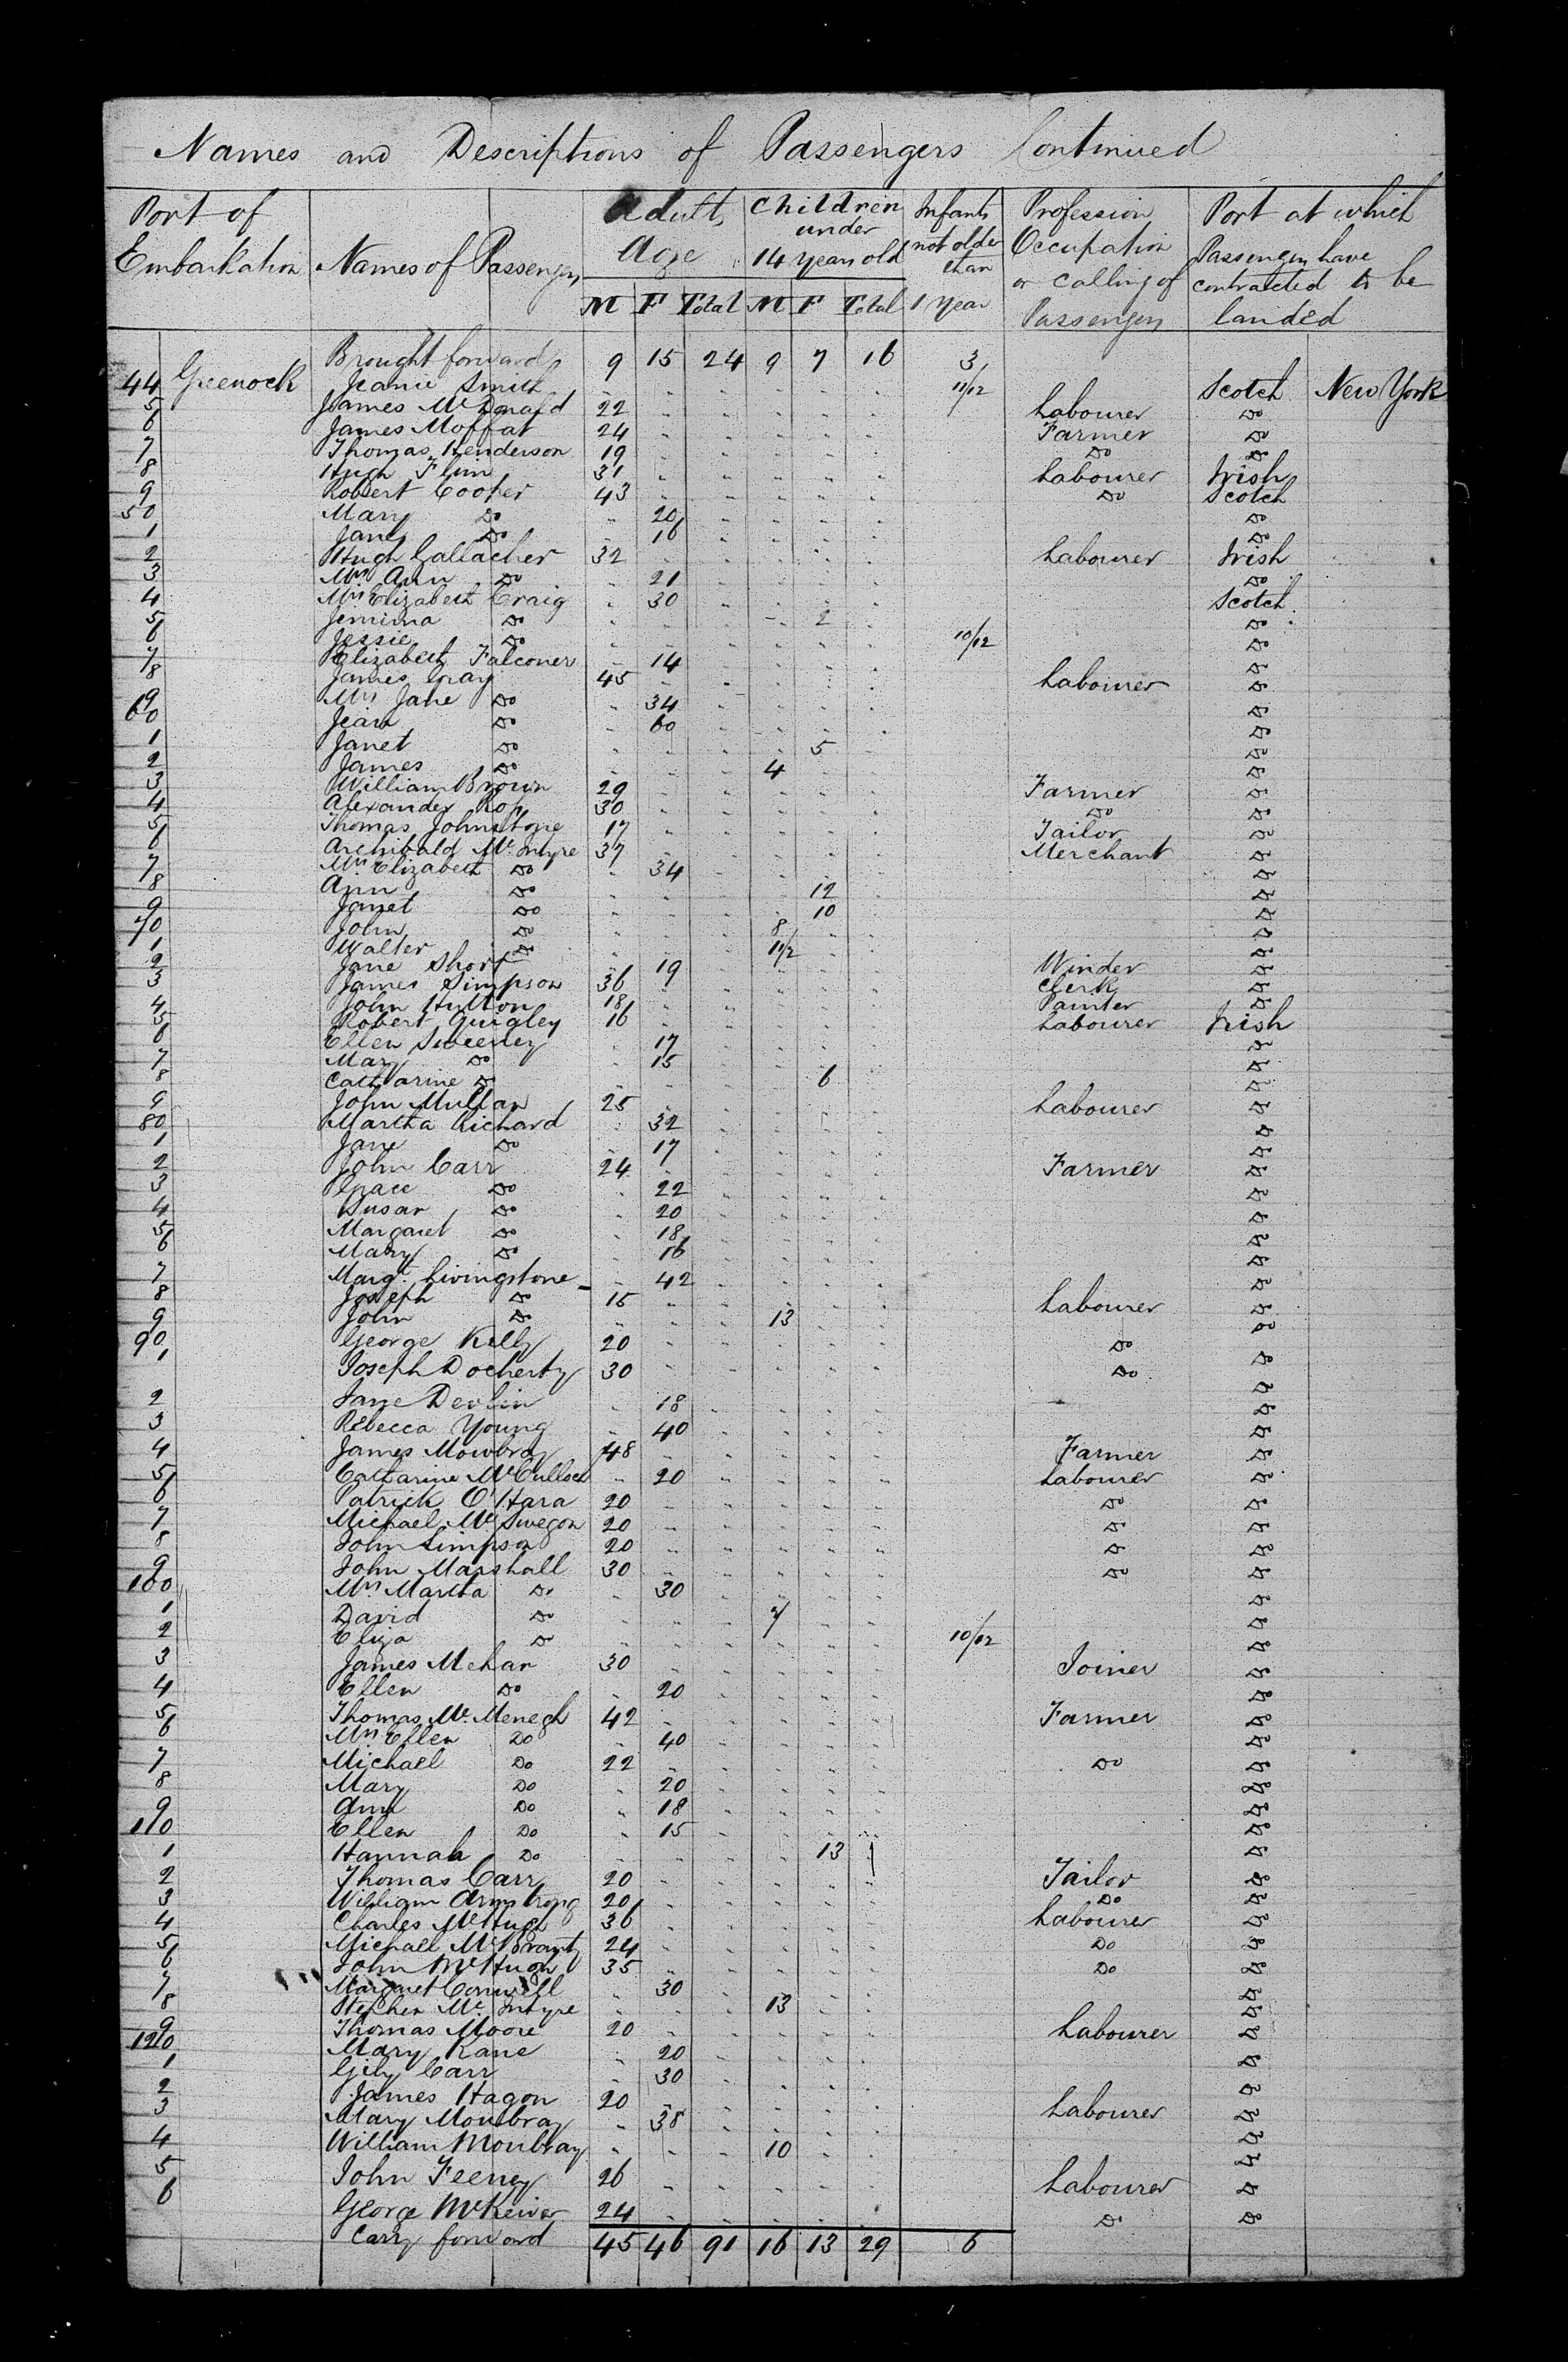 Names and Descriptions of Passengers Continued
Port of Embarkation Names of Passengers Adults Age Children under 14 years old Infants not older than 1 Year Profession Occupation or calling of Passengers Port at which Passengers have contracted to be landed
M F Total M F Total
Brought forward 9 15 24 9 7 16 3
44 Greenock Jeanie Smith 11/12 Scotch New York
5 James McDonald 22 Labourer Do
6 James Moffat 24 Farmer Do
7 Thomas Henderson 19 Do Do
8 Hugh Flinn 31 Labourer Irish
9 Robert Cooper 43 Do Scotch
50 Mary Do 20 Do
1 Jane Do 16 Do
2 Hugh Gallacher 32 Labourer Irish
3 Mrs Ann Do 21 Do
4 Mrs Elizabeth Craig 30 Scotch
5 Jemima Do 2 Do
6 Jessie Do 10/12 Do
7 Elizabeth Falconer 14 Do
8 James Gray 45 Labourer Do
9 Mrs Jane Do 34 Do
60 Jean Do 60 Do
1 Janet Do 5 Do
2 James Do 4 Do
3 William Brown 29 Farmer Do
4 Alexander 30 Do Do
5 Thomas Johnstone 17 Tailor Do
6 Archibald McIntyre 37 Merchant Do
7 Mrs Elizabeth Do 34 Do
8 Ann Do 12 Do
9 Janet Do 10 Do
70 John Do 8 Do
1 Walter Do Do
2 Jane Short 19 Winder Do
3 James Simpson 36 Clerk Do
4 John Hutton 18 Painter Do
5 Robert Quigley 16 Labourer Irish
6 Ellen Sweeney 17 Do
7 Mary Do 15 Do
8 Catharine Do 6 Do
9 John Mullan 25 Labourer Do
80 Martha Richard 32 Do
1 Jane Do 17 Do
2 John Carr 24 Farmer Do
3 Grace Do 22 Do
4 Susan Do 20 Do
5 Margaret Do 18 Do
6 Mary Do 16 Do
7 Margt. Livingstone 42 Do
8 Joseph Do 15 Labourer Do
9 John Do 13 Do
90 George Kelly 20 Do Do
1 Joseph Docherty 30 Do Do
2 Jane Devlin 18 Do
3 Rebecca Young 40 Do
4 James Mowbray 48 Farmer Do
5 Catharine McCulloch 20 Labourer Do
6 Patrick O'Hara 20 Do Do
7 Michael McSwegon 20 Do Do
8 John Simpson 20 Do Do
9 John Marshall 30 Do Do
100 Mrs Martha Do 30 Do
1 David Do 7 Do
2 Eliza Do 10/12 Do
3 James Mehan 30 Joiner Do
4 Ellen Do 20 Do
5 Thomas McMenegh 42 Farmer Do
6 Mrs Ellen Do 40 Do
7 Michael Do 22 Do Do
8 Mary Do 20 Do
9 Ann Do 18 Do
110 Ellen Do 15 Do
1 Hannah Do 13 Do
2 Thomas Carr 20 Tailor Do
3 William Armstrong 20 Do Do
4 Charles McHugh 36 Labourer Do
5 Michael 24 Do Do
6 John McHugh 35 Do Do
7 Margaret Conwell 30 Do
8 Stephen McIntyre 13 Do
9 Thomas Moore 20 Labourer Do
120 Mary Kane 20 Do
1 Carr 30 Do
2 James Hagon 20 Labourer Do
3 Mary Mowbray 38 Do
4 William Mowbray 10 Do
5 John Feeney 26 Labourer Do
6 George 24 Do Do
Carry forward 45 46 91 16 13 29 6